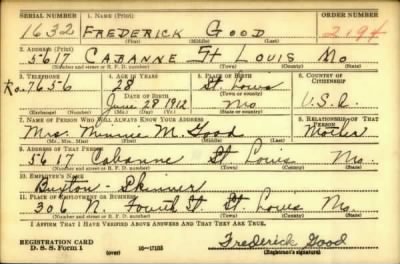 SERIAL NUMBER 1. NAME (Print) ORDER NUMBER
1632 FREDERICK GOOD 2194
(First) (Middle) (Last)
2. ADDRESS (Print)
5617 CABANNE ST LOUIS MO
(Number and street or R. F. D. number) (Town) (County) (State)
3. TELEPHONE 4. AGE IN YEARS 5. PLACE OF BIRTH 6. COUNTRY OF CITIZENSHIP
Ro. 7656 28 St Louis
DATE OF BIRTH (Town or county)
June 28 1912 Mo U.S.A.
(Exchange) (Number) (Mo.) (Day) (Yr.) (State or country)
7. NAME OF PERSON WHO WILL ALWAYS KNOW YOUR ADDRESS 8. RELATIONSHIP OF THAT PERSON
Mrs. Minnie M. Good Mother
(Mr., Mrs., Miss) (First) (Middle) (Last)
9. ADDRESS OF THAT PERSON
5617 Cabanne St. Louis Mo.
(Number and street or R. F. D. number) (Town) (County) (State)
10. EMPLOYER'S NAME
Buxton - Skinner
11. PLACE OF EMPLOYMENT OR BUSINESS
306 N. Fourth St. St. Louis Mo.
(Number and street or R. F. D. number) (Town) (County) (State)
I AFFIRM THAT I HAVE VERIFIED ABOVE ANSWERS AND THAT THEY ARE TRUE.
REGISTRATION CARD
D. S. S. Form 1 (over) 16—17105 Frederick Good
(Registrant's signature)